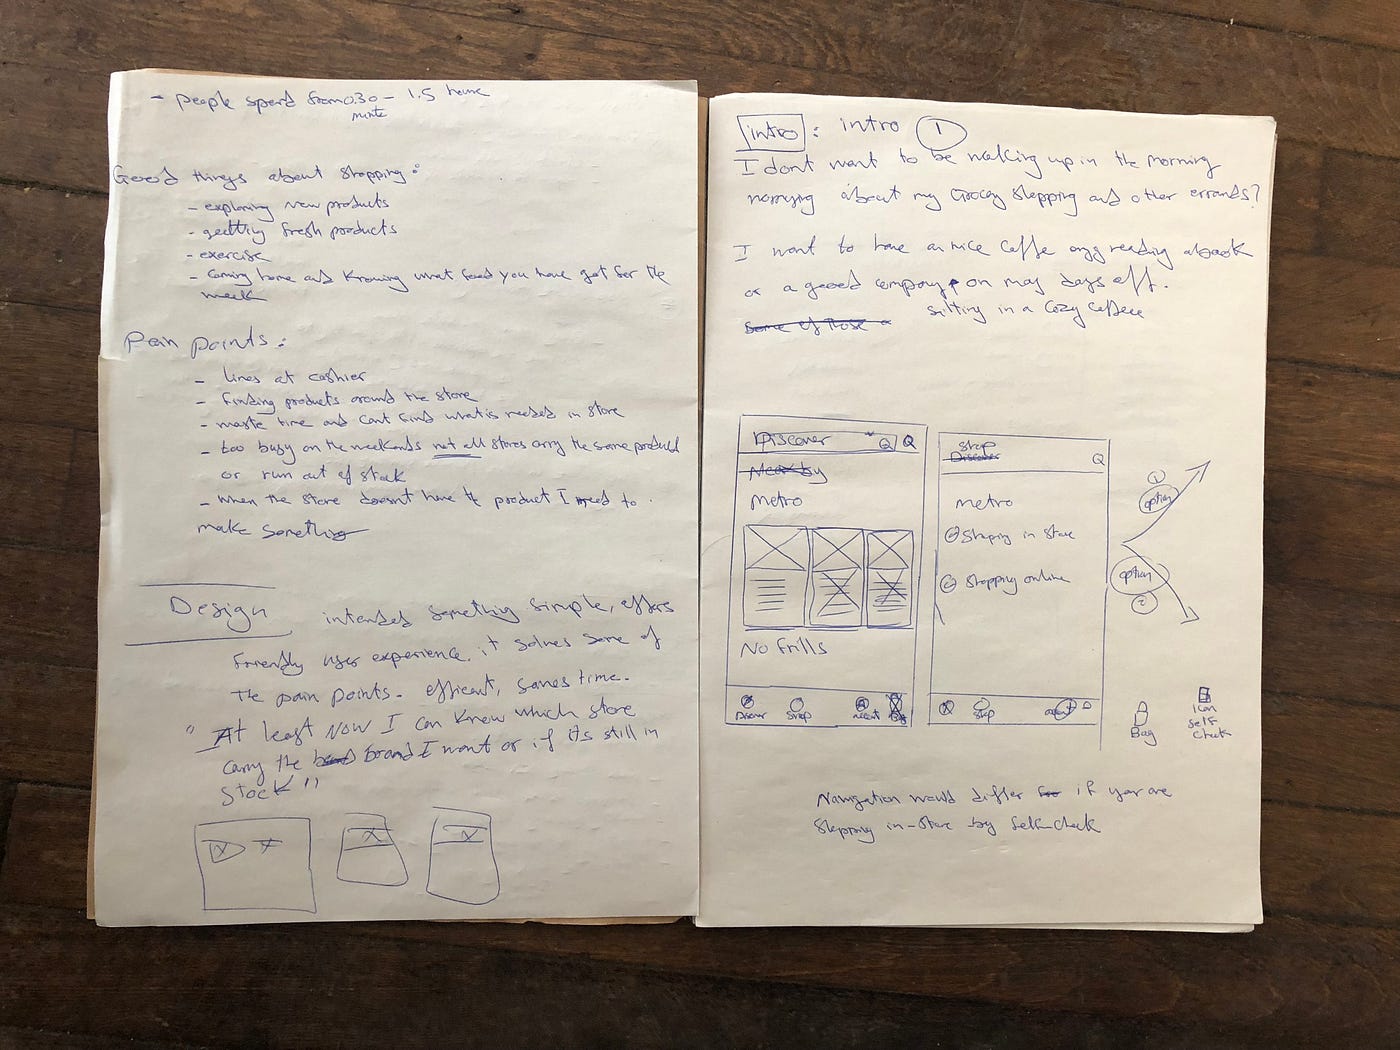 - people spend from 0.30 - 1.5 hour
minute
Good things about shopping:
- exploring new products
- getting fresh products
- exercise
- coming home and knowing what food you have got for the
week
Pain points:
- lines at cashier
- finding products around the store
- waste time and cant find what is needed in store
- too busy on the weekends not all stores carry the same product
or run out of stock
- when the store doesn't have the product I need to
make something
Design
intended something simple, offers
friendly user experience. it solves some of
the pain points. efficent, saves time.
"At least Now I can know which store
carry the brand I want or if its still in
stock"
intro: intro 1
I dont want to be waking up in the morning
worrying about my Grocey shopping and other errands?
I want to have a nice coffe reading a book
or a good company on my days off.
Some of those
sitting in a cozy
Discover
Near by
Metro
No frills
Discover shop
Shop
Discover
metro
Shoping in store
Shopping online
shop
1
option
option
2
Bag
Icon
self
check
Navigation would differ if you are
shopping in-store by self-check